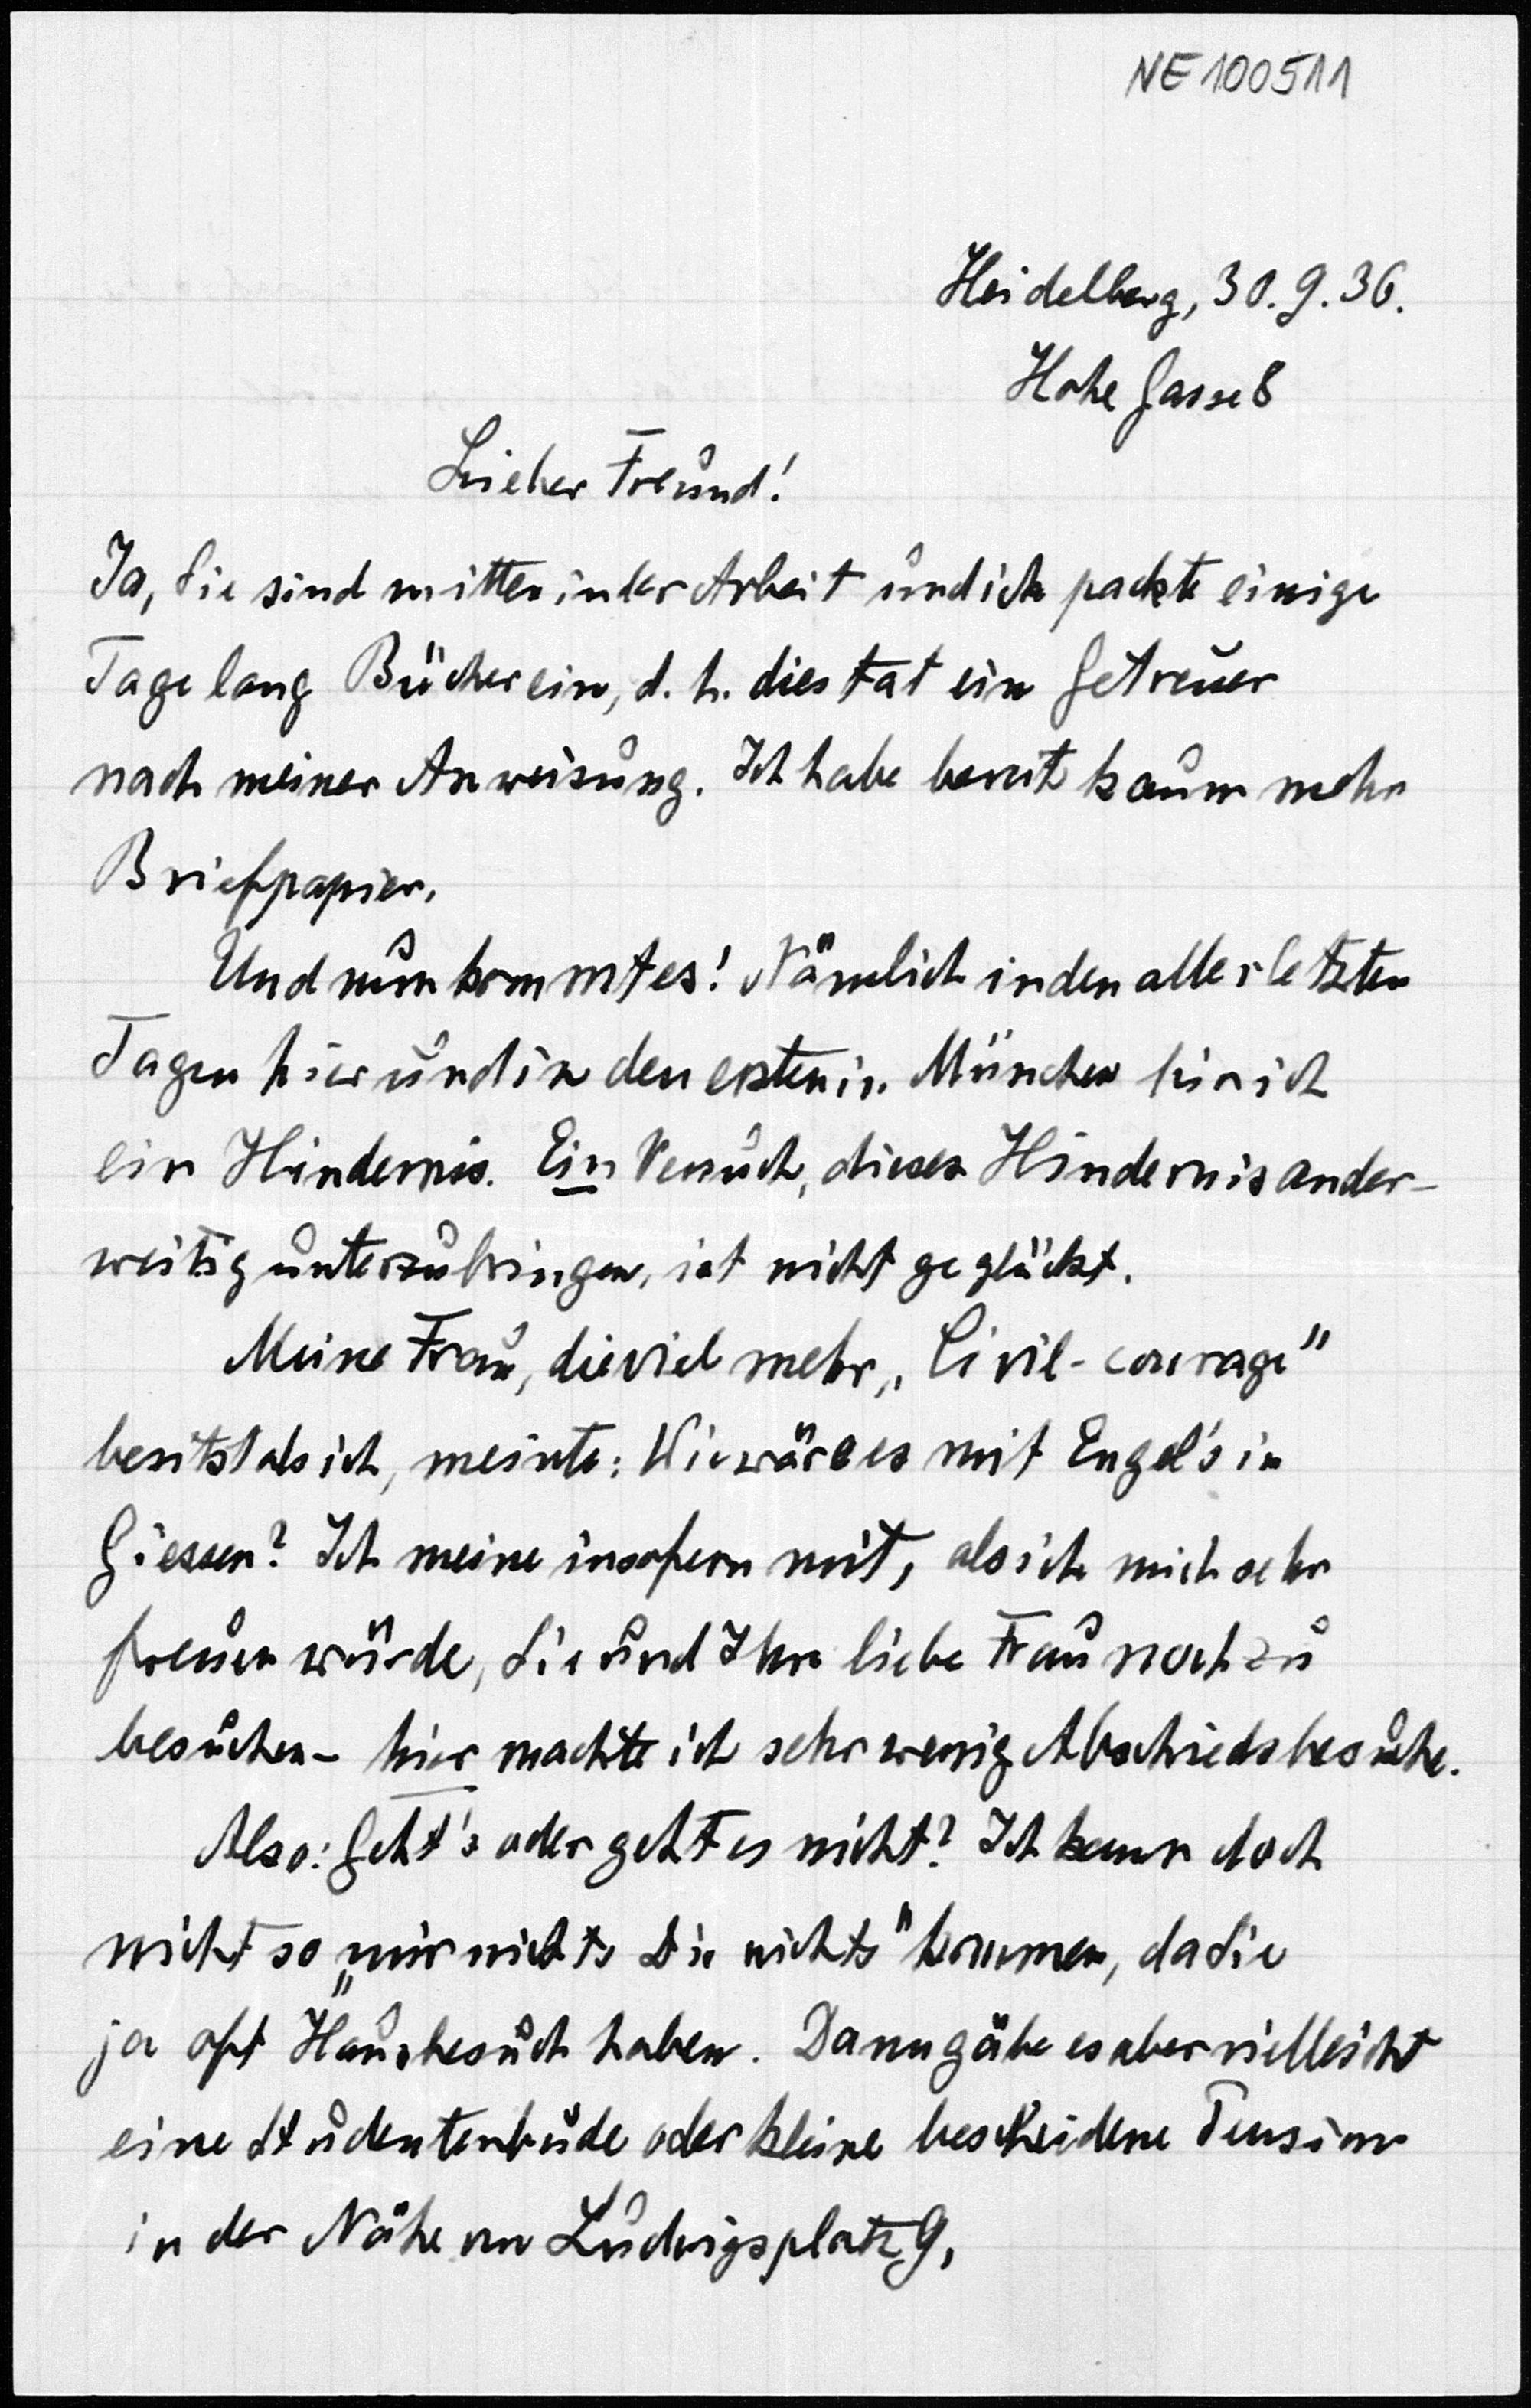 NE 100511
Heidelberg, 30.9.36.
Hohe Gasse 8
Lieber Freund!
Ja, Sie sind mitten in der Arbeit und ich packte einige
Tage lang Bücher ein, d. h. dies tat ein Getreuer
nach meiner Anweisung. Ich habe bereits kaum mehr
Briefpapier.
Und nun kommt es! Nämlich in den allerletzten
Tagen hier und in den ersten in München bin ich
ein Hindernis. Ein Versuch, dieses Hindernis ander-
weitig unterzubringen, ist nicht geglückt.
Meine Frau, die viel mehr „Civil-courage"
besitzt als ich, meinte: Wie wäre es mit Engel's in
Giessen? Ich meine insofern mit, als ich mich sehr
freuen würde, Sie und Ihre liebe Frau noch zu
besuchen – hier machte ich sehr wenig Abschiedsbesuche.
Also: Geht's oder geht es nicht? Ich kann doch
nicht so „mir nichts Dir nichts" kommen, da Sie
ja oft Hausbesuch haben. Dann gäbe es aber vielleicht
eine Studentenbude oder kleine bescheidene Pension
in der Nähe von Ludwigsplatz 9,